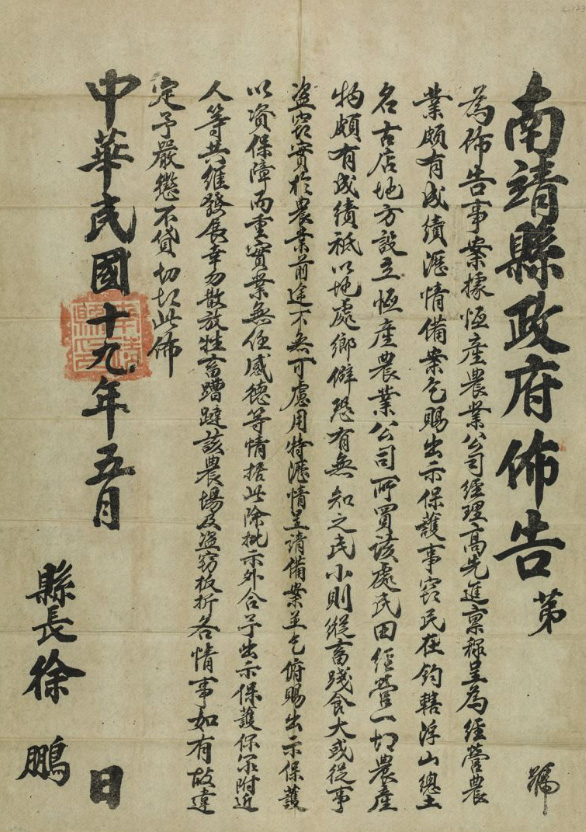 南靖縣政府佈告 第 號
為佈告事案據恆產農業公司經理高先進稟稱呈為經營農
業頗有成績瀝情備案乞賜出示保護事竊民在鈞轄浮山總土
名古店地方設立恆產農業公司所買該處民田經營一切農產
物頗有成績祇以地處鄉僻恐有無知之民小則縱畜踐食大或從事
盜竊實於農業前途不無可慮用特瀝情呈請備案並乞俯賜出示保護
以資保障而重實業無任感德等情据此除批示外合予出示保護仰眾附近
人等共維發展幸勿散放牲畜蹧蹋該農場及盜竊扳折各情事如有故違
定予嚴懲不貸切切此佈
中華民國十九年五月 日
縣長徐鵬